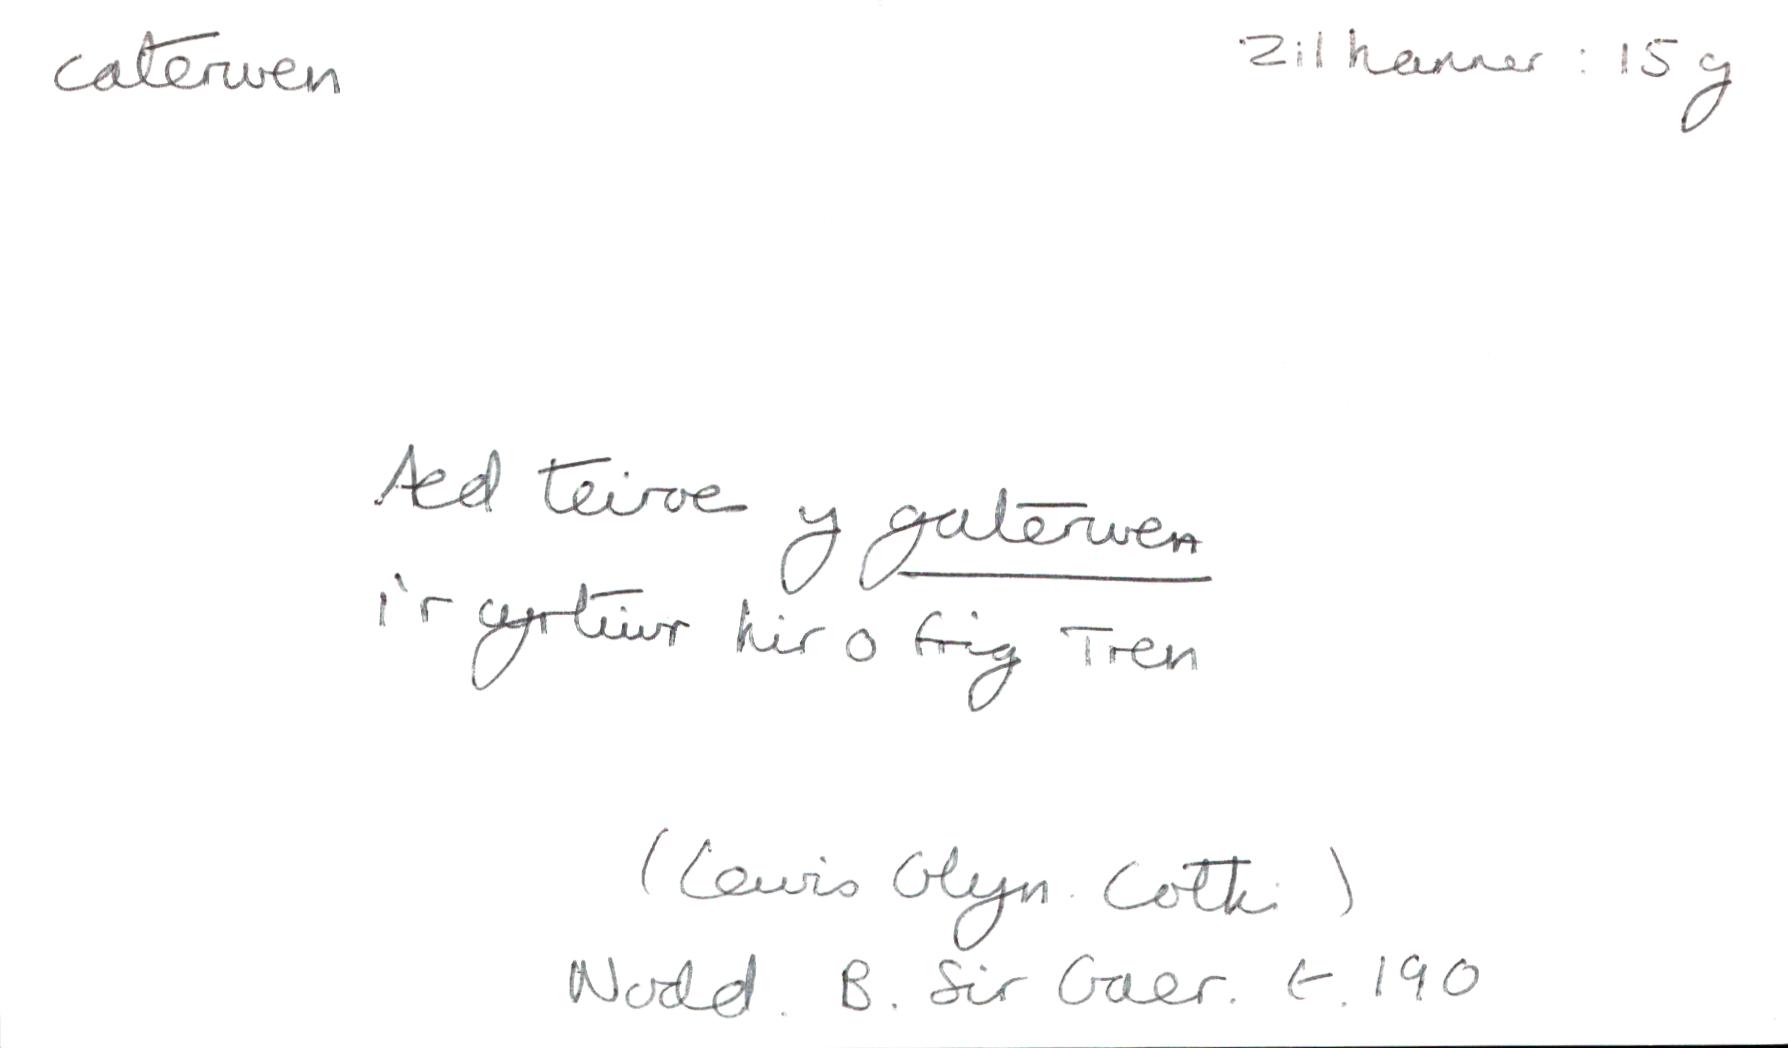 caterwen
2il hanner : 15g
Aed teiroe y gaterwen
i'r cyrtiwr hir o frig Tren
(Lewis Glyn Cothi)
Nodd. B. Sir Gaer. t. 190